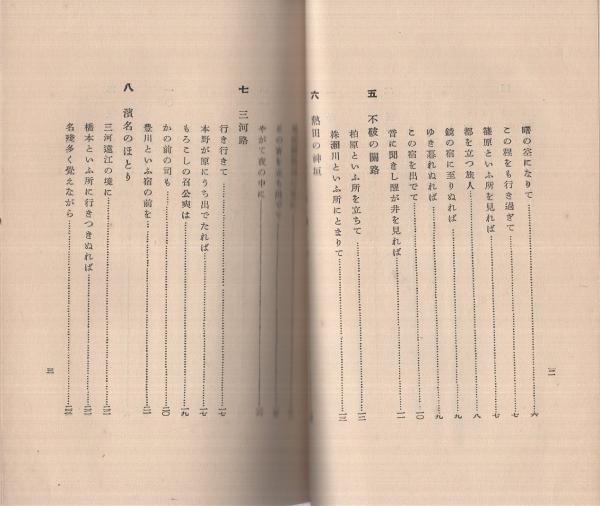 曙の空になりて……六
この程をも行き過ぎて……七
篠原といふ所を見れば……七
都を立つ旅人……八
鏡の宿に至りぬれば……九
ゆき暮れぬれば……九
この宿を出でて……一〇
音に聞きし醒が井を見れば……一一
五 不破の關路
柏原といふ所を立ちて……
株瀬川といふ所にとまりて……
六 熱田の神垣
やがて夜の中に……
七 三河路
行き行きて……一七
本野が原にうち出でたれば……一七
もろこしの召公奭は……一九
かの前の司も……二〇
豊川といふ宿の前を……二一
八 濱名のほとり
三河遠江の境に……
橋本といふ所に行きつきぬれば……
名殘多く覺えながら……